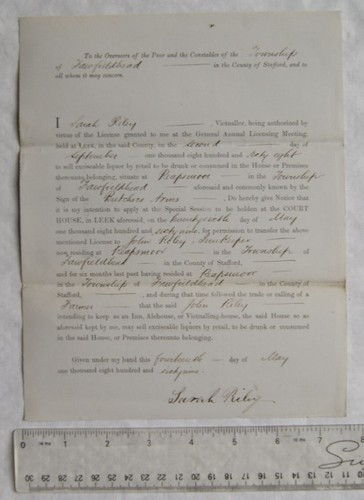 To the Overseers of the Poor and the Constables of the Township
of Fawfieldhead in the County of Stafford, and to
all whom it may concern.
I Sarah Riley, Victualler, being authorized by
virtue of the License granted to me at the General Annual Licensing Meeting,
held at LEEK, in the said County, on the second day of
September one thousand eight hundred and sixty eight
to sell exciseable liquors by retail to be drunk or consumed in the House or Premises
thereunto belonging, situate at Reapsmoor in the Township
of Fawfieldhead aforesaid and commonly known by the
Sign of the Butchers Arms, Do hereby give Notice that
it is my intention to apply at the Special Session to be holden at the COURT
HOUSE, in LEEK aforesaid, on the day of May
one thousand eight hundred sixty nine, for permission to transfer the above
mentioned License to John Riley, Innkeeper
now residing at Reapsmoor in the Township of
Fawfieldhead in the County of Stafford,
and for six months last past having resided at Reapsmoor
in the Township of Fawfieldhead in the County of
Stafford, , and during that time followed the trade or calling of a
Farmer that the said John Riley
intending to keep an Inn, Alehouse, or Victualling-house, the said House as as
aforesaid kept by me, may sell exciseable liquors by retail, to be drunk or consumed
in the said House, or Premises thereunto belonging.
Given under my hand this fourteenth day of May
one thousand eight hundred and sixty nine.
Sarah Riley
1 2 3 4 5 6 7 8
30 29 28 27 26 25 24 23 22 21 20 19 18 17 16 15 14 13 12 11 10